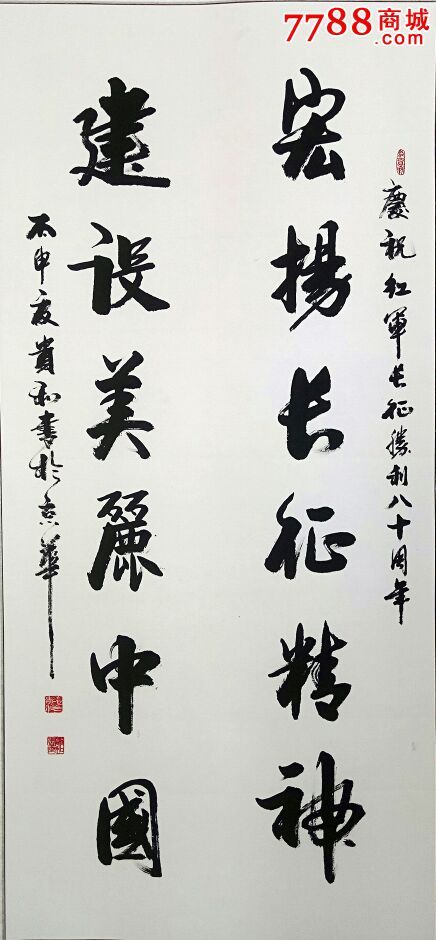 7788商城
.com
慶祝红軍长征勝利八十周年
宏揚长征精神
建设美麗中國
丙申夏貴和書於京華